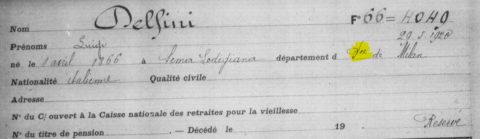 Nom Delfini F° 66 = 4040
Prénoms Luigi 29.5.1920
né le 1 avril 1866 à département d de Milan
Nationalité italienne Qualité civile
Adresse
N° du C/ ouvert à la Caisse nationale des retraites pour la vieillesse
N° du titre de pension . — Décédé le 19 . Réservé